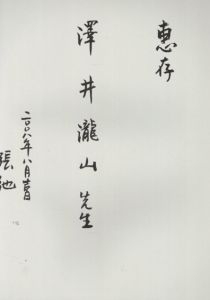 惠存
澤井瀧山先生
二〇〇八年八月吉日
張